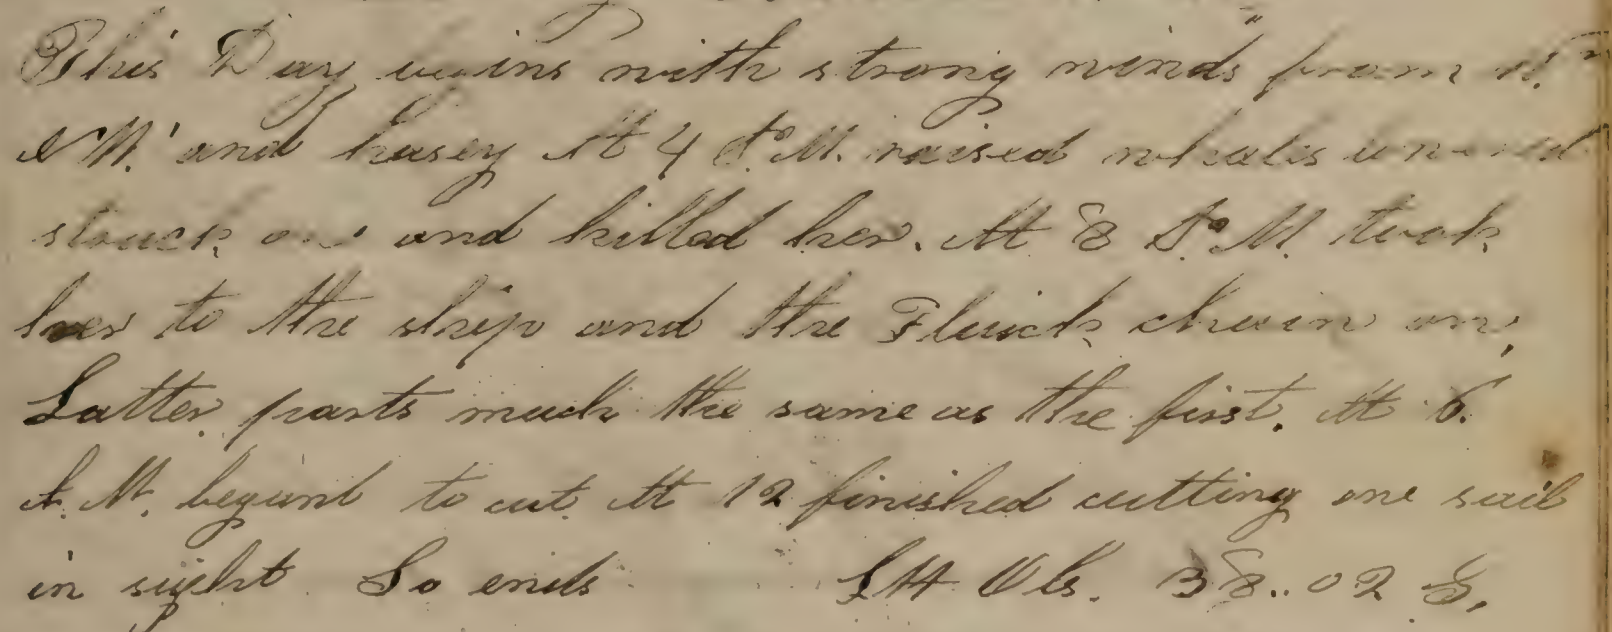 This Day begins with strong winds from W.
N W. and hasey At 4 P. M. raised whales
struck one and killed her. At 8 P. M. took
her to the ship and the Fluick chain on,
Latter parts much the same as the first. At 6.
A. M. begand to cut At 12 finished cutting one sail
in sight So ends Obs. 38..02 S.